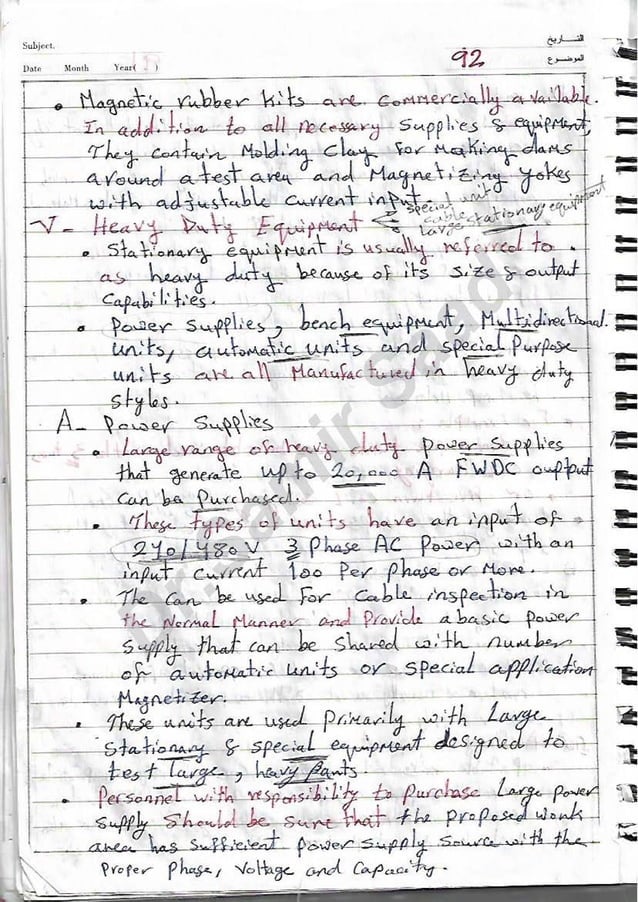 Subject.
التـــاريخ
Date Month Year( )
92
الموضـــوع
• Magnetic rubber kits are commercially available.
In addition to all necessary supplies & equipment,
They contain Molding Clay for Making dams
around a test area and Magnetizing yokes
with adjustable current input.
V- Heavy Duty Equipment
special unit
cable
large stationary equipment
• Stationary equipment is usually referred to
as heavy duty because of its size & output
Capabilities.
• Power supplies, bench equipment, Multidirectional
units, automatic units and special Purpose
units are all Manufactured in heavy duty
styles.
A- Power Supplies
• Large range of heavy duty power supplies
that generate up to 20,000 A FWDC output
can be Purchased.
• These types of units have an input of
240/480 V 3 Phase AC Power with an
input current 100 Per phase or More.
• The can be used for cable inspection in
the Normal Manner and Provide a basic power
supply that can be shared with number
of automatic units or special application
Magnetizer.
• These units are used Primarily with Large
Stationary & special equipment designed to
test large, heavy Parts.
• Personnel with responsibility to purchase Large power
supply should be sure that the proposed work
area has sufficient power supply source with the
Proper phase, Voltage and Capacity.